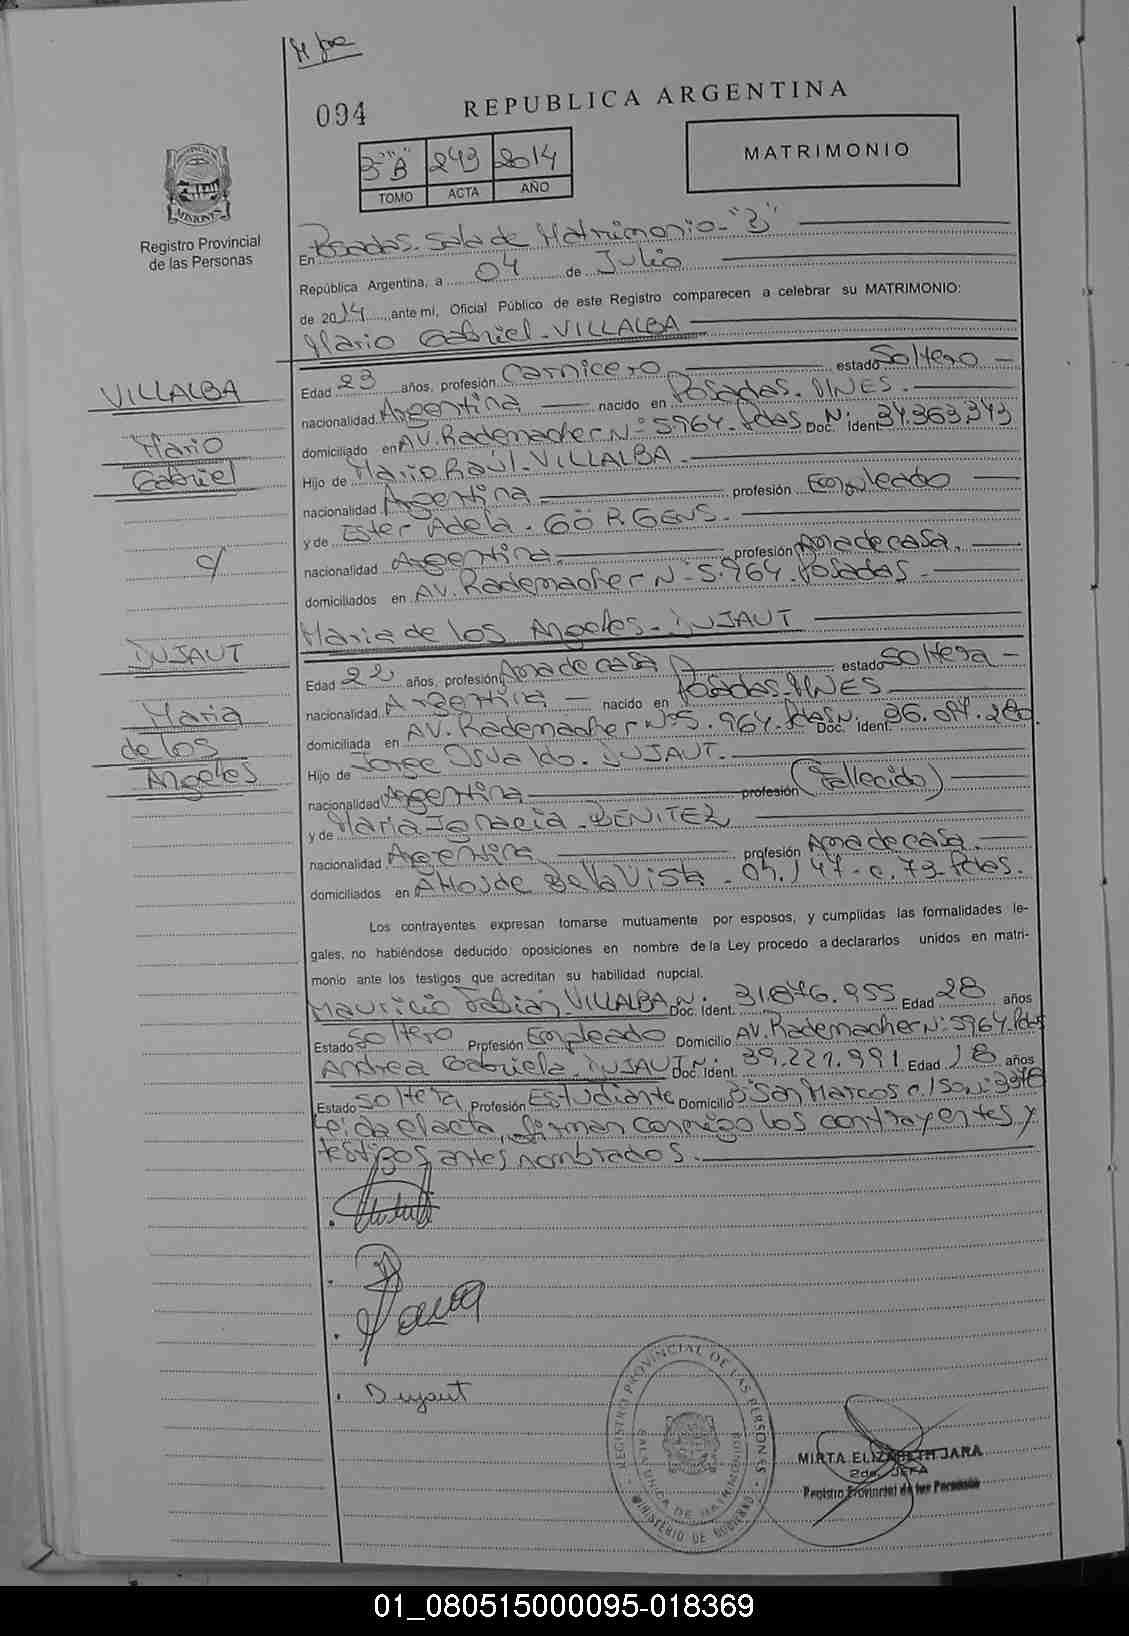 094
REPUBLICA ARGENTINA
3-"B" 243 2014
TOMO ACTA AÑO
MATRIMONIO
PROVINCIA DE
MISIONES
Registro Provincial
de las Personas
En Posadas. Sala de Matrimonio-"B"
República Argentina, a 04 de Julio
de 2014, ante mí, Oficial Público de este Registro comparecen a celebrar su MATRIMONIO:
Mario Gabriel-VILLALBA
VILLALBA
Mario
Gabriel
c/
DUJAUT
Maria
de los
Angeles
Edad 23 años, profesión Carnicero estado Soltero
nacionalidad Argentina nacido en Posadas. MNES.
domiciliado en AV. Rademacher Nº 5964. Pdas Doc. Ident. Nº 34.363.343
Hijo de Mario Raúl. VILLALBA.
nacionalidad Argentina profesión Empleado
y de Ester Adela. GÖRGENS.
nacionalidad Argentina. profesión Ama de casa.
domiciliados en AV. Rademacher Nº 5.964. Posadas.
Maria de los Angeles. DUJAUT
Edad 22 años, profesión Ama de casa estado Soltera
nacionalidad Argentina nacido en Posadas. MNES
domiciliada en AV. Rademacher Nº 5.964. Pdas Doc. Ident. Nº
Hijo de Jorge Osvaldo. DUJAUT.
nacionalidad Argentina profesión (Fallecido)
y de Maria Ignacia. BENITEZ
nacionalidad Argentina profesión Ama de casa.
domiciliados en A Hos de Bella Vista. Ch. 147-c. 73-Pdas.
Los contrayentes expresan tomarse mutuamente por esposos, y cumplidas las formalidades le-
gales, no habiéndose deducido oposiciones en nombre de la Ley procedo a declararlos unidos en matri-
monio ante los testigos que acreditan su habilidad nupcial.
Mauricio Fabian. VILLALBA Doc. Ident. Nº 31.876.955 Edad 28 años
Estado Soltero Profesión Empleado Domicilio AV. Rademacher Nº 5964. Pdas
Andrea Gabriela. DUJAUT Doc. Ident. Nº 39.221.991 Edad 18 años
Estado Soltera Profesión Estudiante Domicilio Bº San Marcos
Leída el acta, firman conmigo los contrayentes y
testigos antes nombrados.
Dujaut
REGISTRO PROVINCIAL DE LAS PERSONAS
SALA UNICA DE MATRIMONIO
MINISTERIO DE GOBIERNO
MIRTA ELIZABETH JARA
2da. JEFA
Registro Provincial de las Personas
01_080515000095-018369